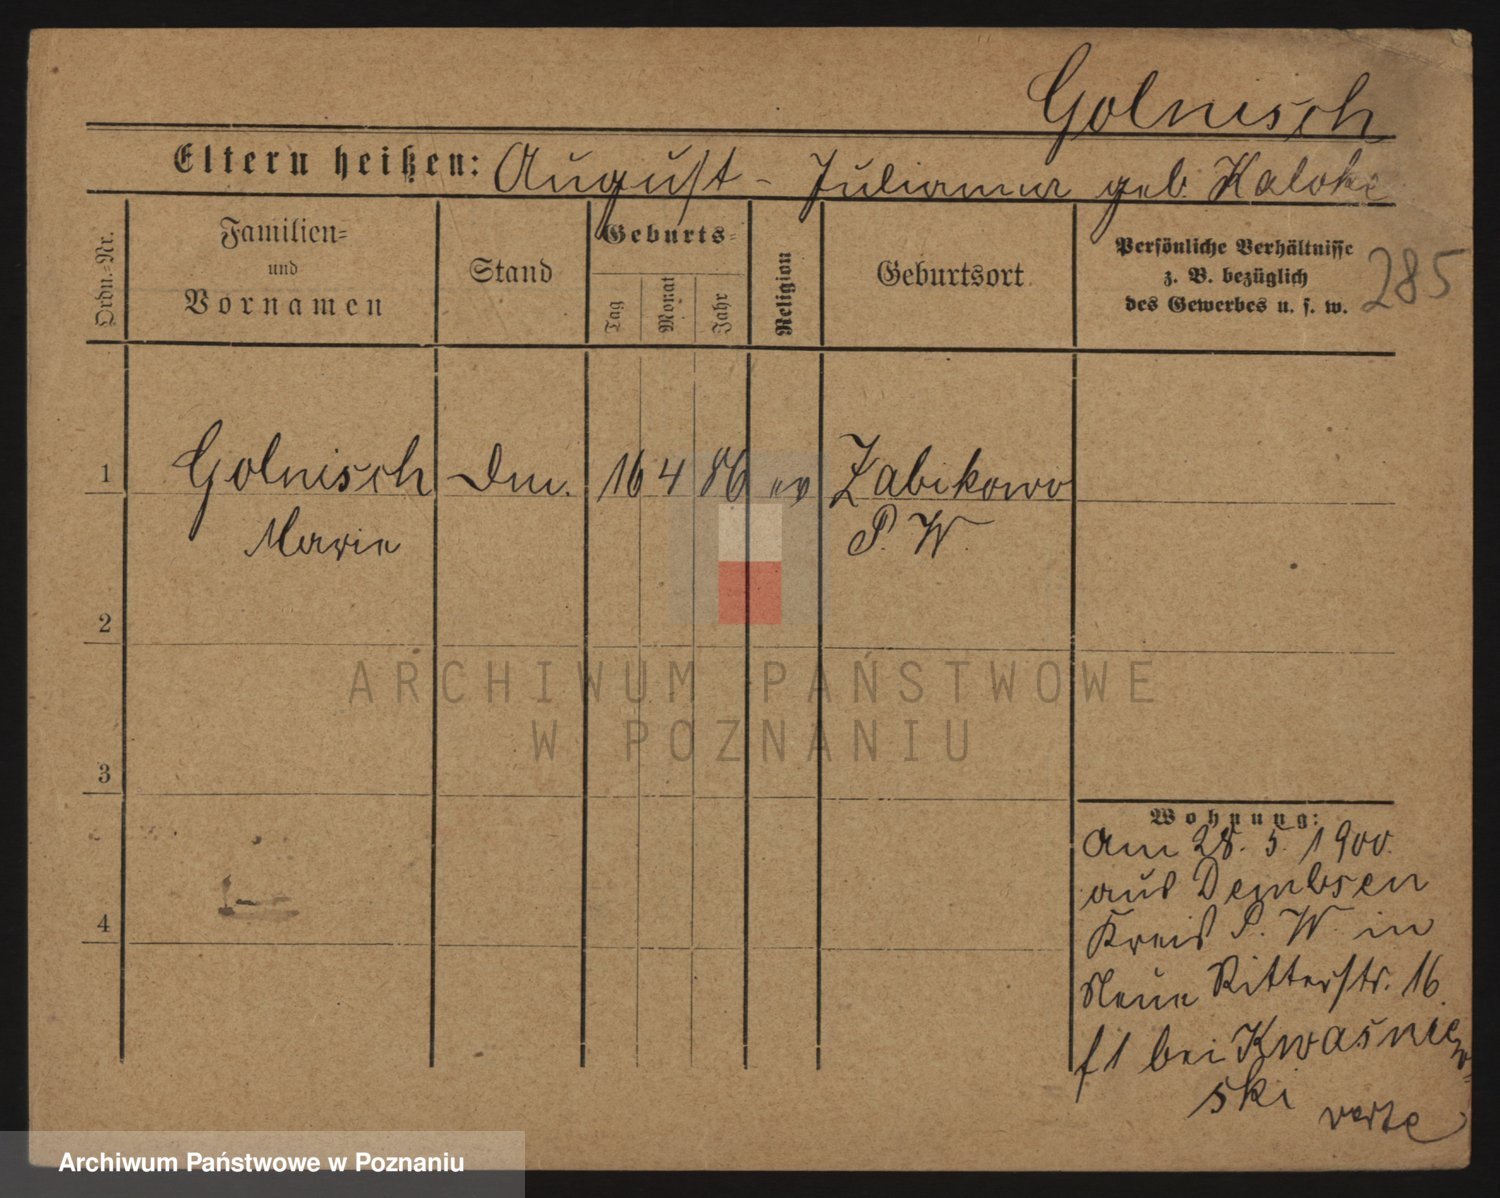 Golnisch
Eltern heißen: August - Julianna geb. Kaloke
Ordn.=Nr.
Familien=
und
Vornamen
Stand
Geburts=
Tag
Monat
Jahr
Religion
Geburtsort
Persönliche Verhältnisse
z. B. bezüglich
des Gewerbes u. s. w.
285
1 Golnisch Dm. 16 4 86 ev Zabikowo
Marie P. W.
2
3
4
Wohnung:
Am 28. 5. 1900.
aus Dembsen
Kreis P. W. in
Neue Ritterstr. 16.
f 1 bei Kwasniew=
ski
verte
ARCHIWUM PAŃSTWOWE
W POZNANIU
Archiwum Państwowe w Poznaniu